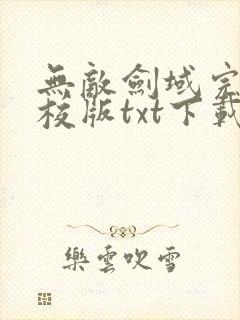 無敵劍域完
校版txt下載
樂雲吹雪